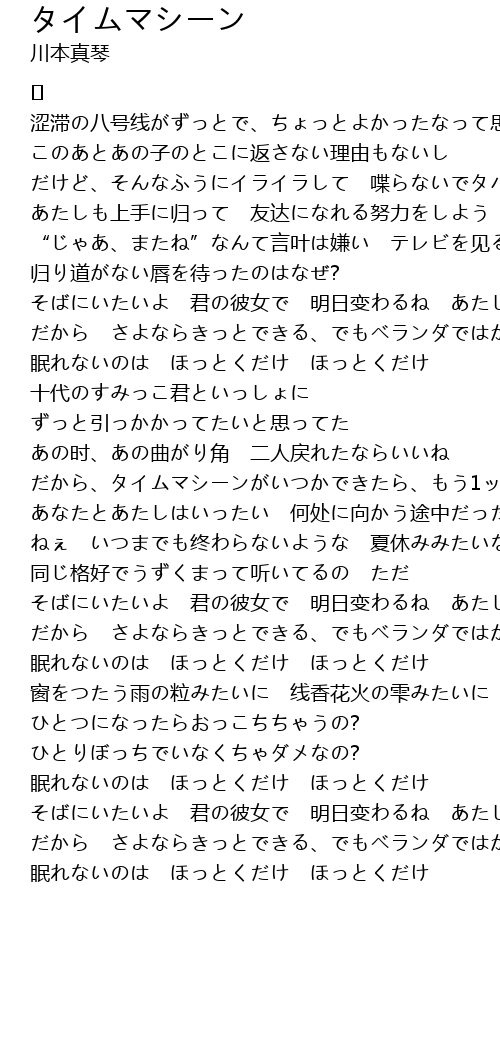 タイムマシーン
川本真琴
涩滞の八号线がずっとで、ちょっとよかったなって思
このあとあの子のとこに返さない理由もないし
だけど、そんなふうにイライラして　喋らないでタバ
あたしも上手に归って　友达になれる努力をしよう
“じゃあ、またね”なんて言叶は嫌い　テレビを见る
归り道がない唇を待ったのはなぜ?
そばにいたいよ　君の彼女で　明日変わるね　あたし
だから　さよならきっとできる、でもベランダではだ
眠れないのは　ほっとくだけ　ほっとくだけ
十代のすみっこ君といっしょに
ずっと引っかかってたいと思ってた
あの时、あの曲がり角　二人戻れたならいいね
だから、タイムマシーンがいつかできたら、もう1ッ
あなたとあたしはいったい　何処に向かう途中だった
ねぇ　いつまでも终わらないような　夏休みみたいな
同じ格好でうずくまって听いてるの　ただ
そばにいたいよ　君の彼女で　明日変わるね　あたし
だから　さよならきっとできる、でもベランダではだ
眠れないのは　ほっとくだけ　ほっとくだけ
窗をつたう雨の粒みたいに　线香花火の雫みたいに
ひとつになったらおっこちちゃうの?
ひとりぼっちでいなくちゃダメなの?
眠れないのは　ほっとくだけ　ほっとくだけ
そばにいたいよ　君の彼女で　明日変わるね　あたし
だから　さよならきっとできる、でもベランダではだ
眠れないのは　ほっとくだけ　ほっとくだけ